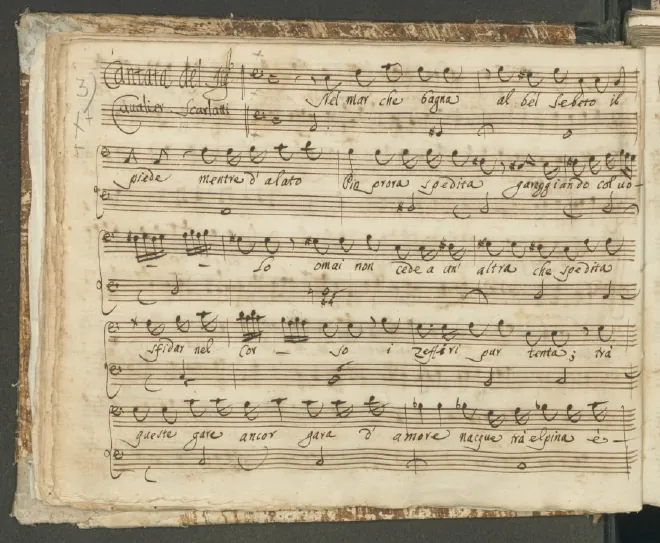 3)
Cantata del Sig.
Cavalier Scarlatti
Nel mar che bagna al bel sebeto il
piede mentre d' alato pin prora spedita gareggiando col uo-
lo omai non cede a un' altra che spedita
sfidar nel Cor - so i zeffiri pur tenta; trà
queste gare ancor gara d' amore nacque trà elpina è -